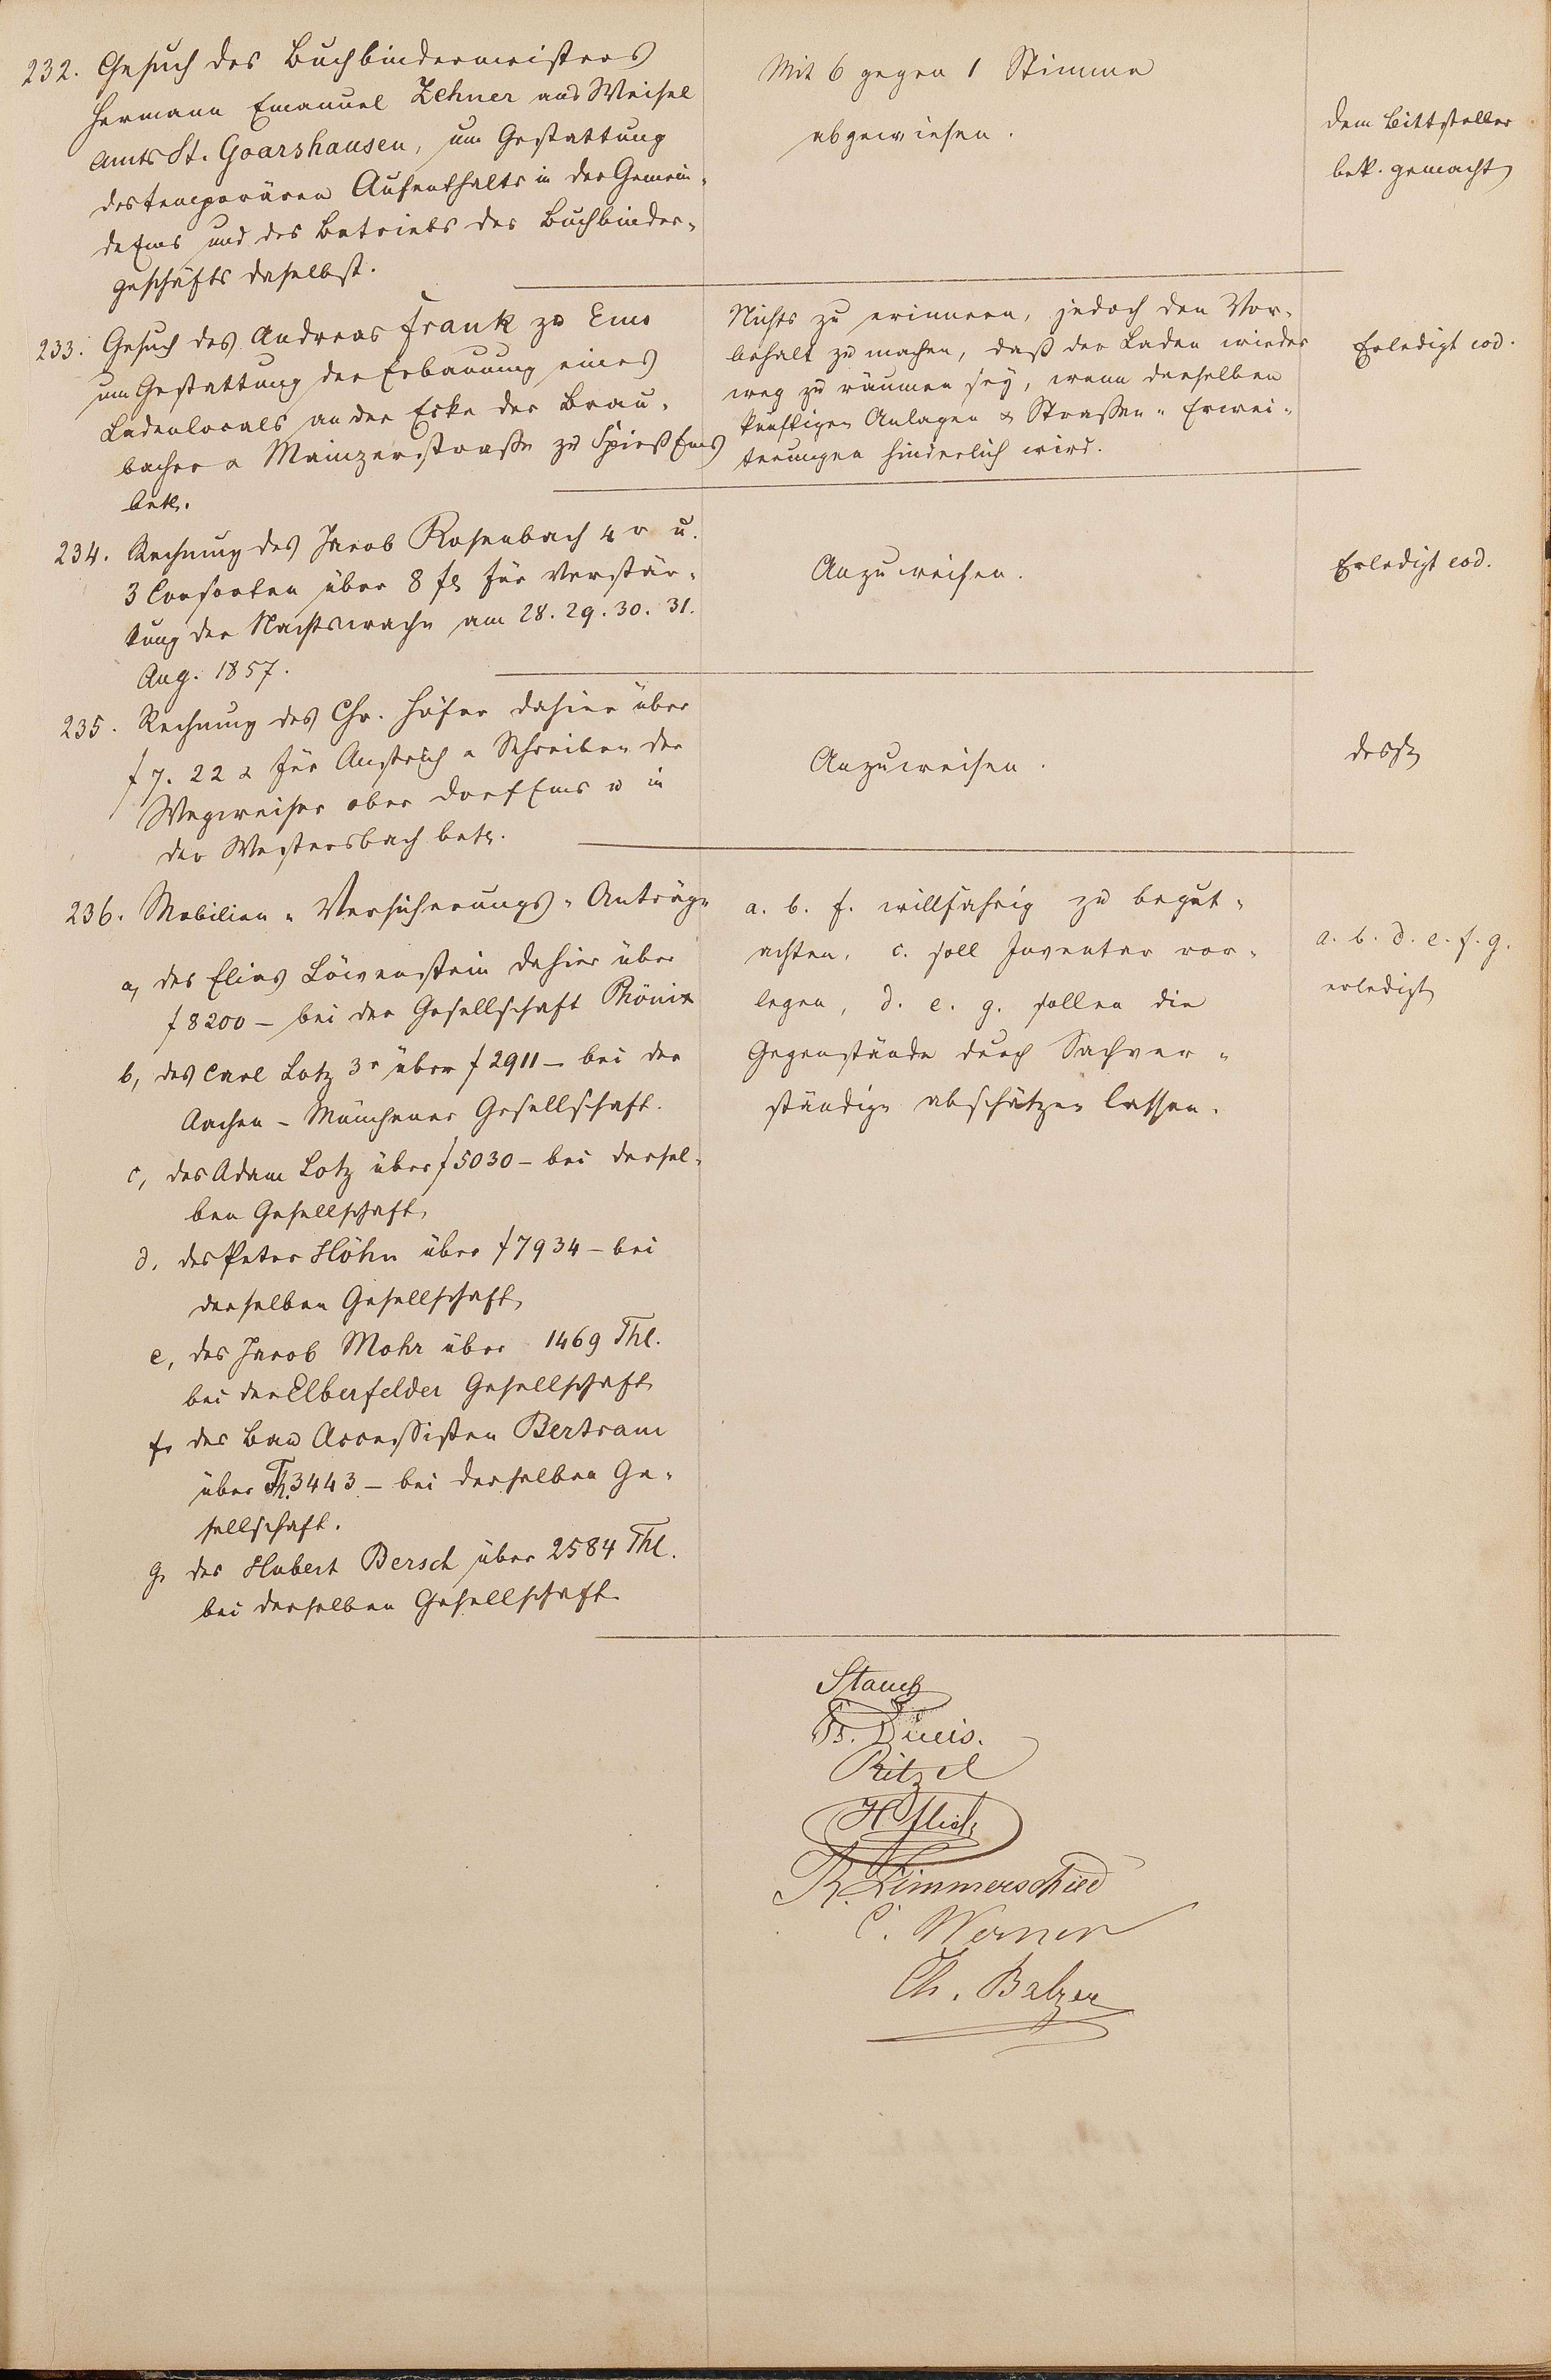 232. Gesuch des Buchbindermeisters
Hermann Emanuel Zehner aus Weisel
Amts St. Goarshausen, um Gestattung
des temporären Aufenthalts in der Gemein-
de Ems und des Betriebs des Buchbinder-
geschäfts daselbst.
Mit 6 gegen 1 Stimme
abgewiesen.
dem Bittsteller
bek. gemacht
233. Gesuch des Andreas Frank zu Ems
um Gestattung der Erbauung eines
Ladenlocals an der Ecke der Brau-
bacher & Mainzerstraße zu Spieß Ems
betr.
Nichts zu erinnern, jedoch den Vor-
behalt zu machen, daß der Laden wieder
weg zu räumen sey, wenn derselben
künftigen Anlagen & Straßen-Erwei-
terungen hinderlich wird.
Erledigt eod.
234. Rechnung des Jacob Rosenbach 4r u.
3 Consorten über 8 fl für Verstär-
kung der Nachtswache am 28. 29. 30. 31.
Aug. 1857.
Anzuweisen.
Erledigt eod.
235. Rechnung des Chr. Höfer dahier über
f 7. 22 x für Anstrich & Schreiben der
Wegweiser ober Dorf Ems u in
der Westersbach betr.
Anzuweisen.
desgl
236. Mobilien-Versicherungs-Anträge
a, des Elias Löwenstein dahier über
f 8200 – bei der Gesellschaft Phönix
b, des Carl Lotz 3r über f 2911 – bei der
Aachen – Münchener Gesellschaft.
c, des Adam Lotz über f 5030 – bei dersel-
ben Gesellschaft,
d, des Peter Höhn über f 7934 – bei
derselben Gesellschaft,
e, des Jacob Mohr über 1469 Thl.
bei der Elberfelder Gesellschaft
f, des Bau Accessisten Bertram
über Th. 3443 – bei derselben Ge-
sellschaft.
g, des Hubert Bersch über 2584 Thl.
bei derselben Gesellschaft
a. b. f. willfahrig zu begut-
achten, c. soll Inventar vor-
legen, d. e. g. sollen die
Gegenstände durch Sachver-
ständige abschätzen lassen.
a. b. d. e. f. g.
erledigt
Ritzel
R. Zimmerschied
C. Werner
Ch. Balzer